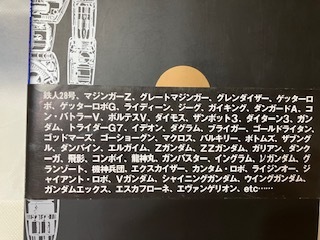 鉄人28号、マジンガーZ、グレートマジンガー、グレンダイザー、ゲッターロ
ボ、ゲッターロボG、ライディーン、ジーグ、ガイキング、ダンガードA、コ
ン・バトラーV、ボルテスV、ダイモス、ザンボット3、ダイターン3、ガン
ダム、トライダーG7、イデオン、ダグラム、ブライガー、ゴールドライタン、
ゴッドマーズ、ゴーショーグン、マクロス、バルキリー、ボトムズ、ザブング
ル、ダンバイン、エルガイム、Zガンダム、ZZガンダム、ガリアン、ダンク
ーガ、飛影、コンボイ、龍神丸、ガンバスター、イングラム、νガンダム、グ
ランゾート、機神兵団、エクスカイザー、ガンダム・ロボ、ライジンオー、ジ
ャイアント・ロボ、Vガンダム、シャイニングガンダム、ウイングガンダム、
ガンダムエックス、エスカフローネ、エヴァンゲリオン、etc……